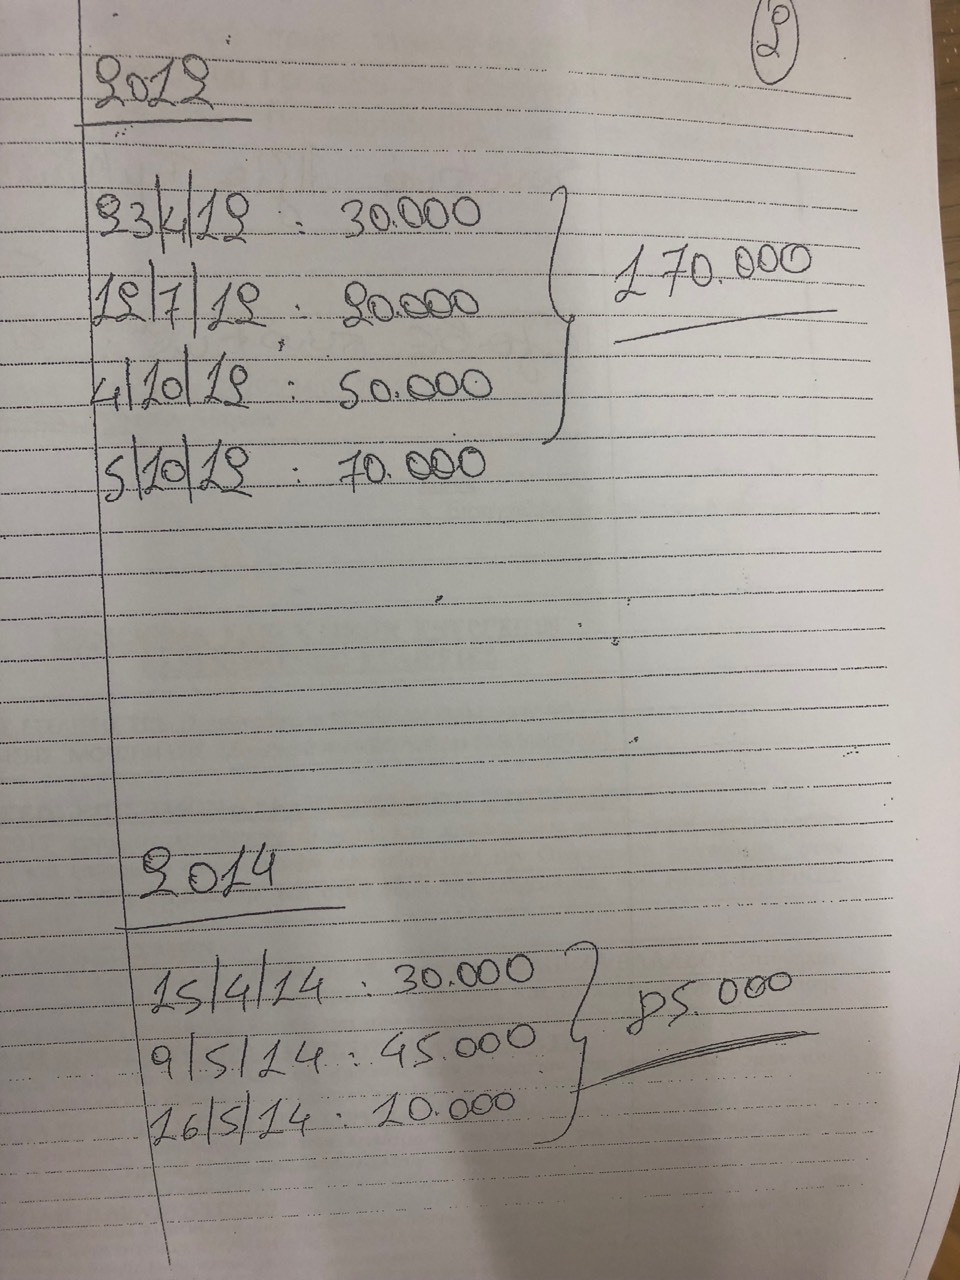 2
2012
23/4/12 : 30.000
12/7/12 : 20.000
170.000
4/10/12 : 50.000
5/10/12 : 70.000
2014
15/4/14 : 30.000
85.000
9/5/14 : 45.000
16/5/14 : 10.000